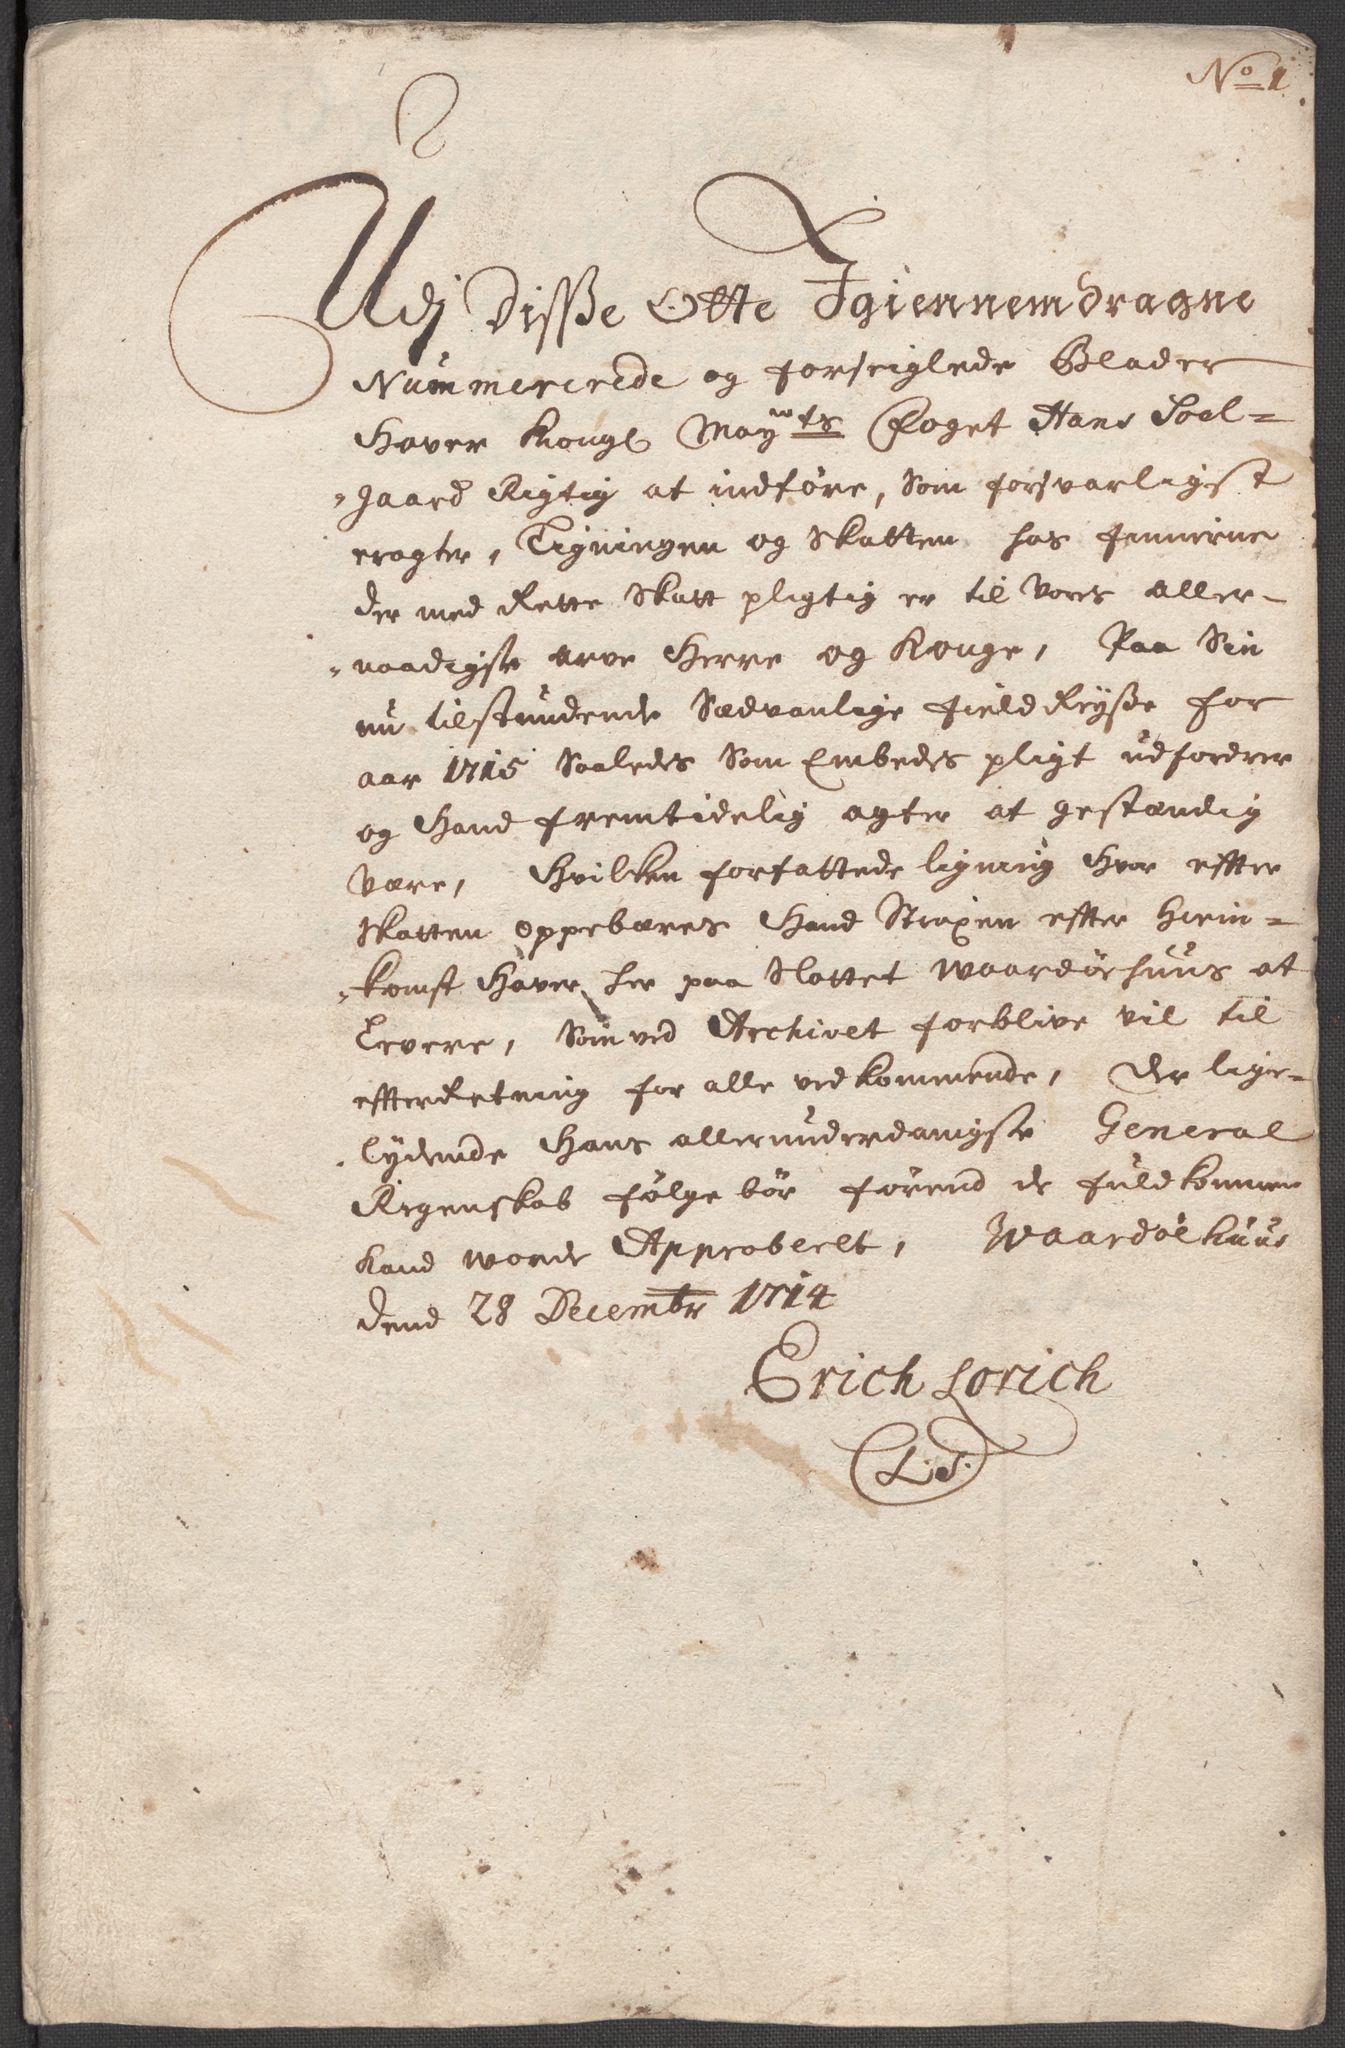 No 1
Udj Disße Otte Igiennemdragne
Nummererede og forseiglede Blader
Haver Kongl Mayts Foget Hans Soel=
gaard Rigtig at indføre, Som forsvarligst
eragter, Ligningen og Skatten hos finnerne
der med Rette Skatt pligtig er til Vores aller-
naadigste arve Herre og Konge, Paa Sin
nu tilstundende Sædvanlige field Reyße for
aar 1715 Saaledes Som Embedes pligt udfordrer
og Hand fremtidelig agter at gestændig
være, Hvilken forfattede ligning Hvor effter
Skatten oppebæres Hand Straxen effter Hiem=
komst Haver her paa Slottet Waardøehuus at
Levere, Som ved Archivet forblive vil til
effterRetning for alle vedkommende, Der lige-
lydende Hans allerunderdanigste General
Regenskab følge bør førend de fuldkommen
kand worde Approbeert, Waardøehuus
dend 28 Decembr 1714
Erich Lorich
L.S.